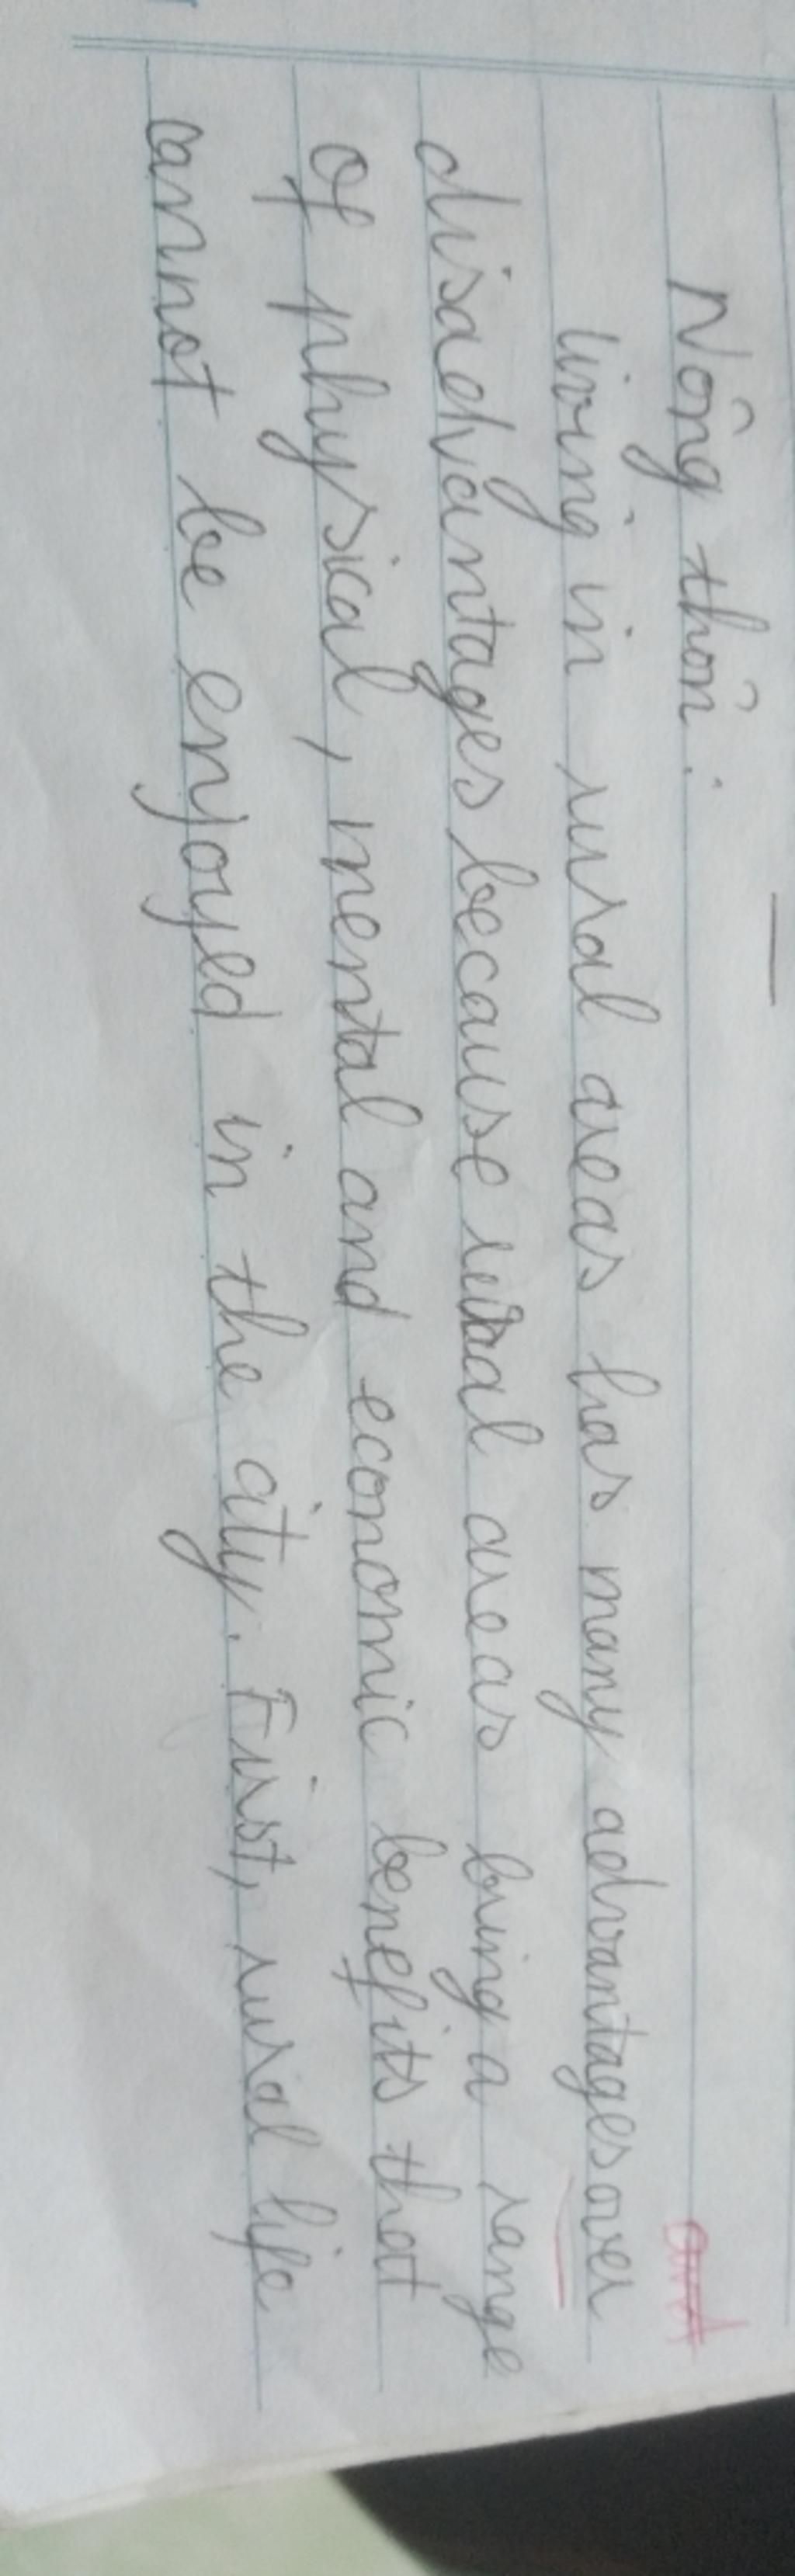 Nông thôn:
living in rural areas has many advantages over
and
disadvantages because rural areas bring a range
of physical, mental and economic benefits that
cannot be enjoyed in the city. First, rural life